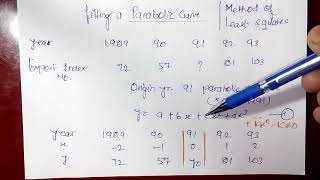 fitting a Parabolic Curve
Method of
Least Squares
year 1989 90 91 92 93
Export Index 72 57 ? 81 103
No.
Origin yr = 91 parabolic
1991)
y = a + bx + + dx³ ①
year 1989 90 91 92 93
x -2 -1 0 1 2
y 72 57 y₀ 81 103